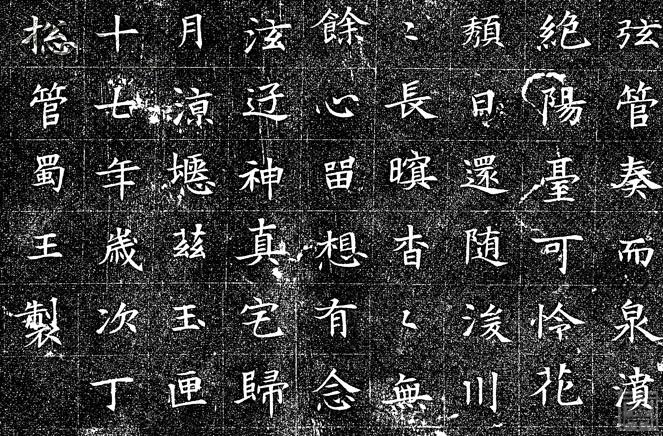 弦管奏而泉濆
絶陽臺可怜花
頹日還随浚川
〻長瞑杳〻無
餘心留想有念
泫迂神真宅歸
月涼瘞兹玉匣
十七年歲次丁
総管蜀王製